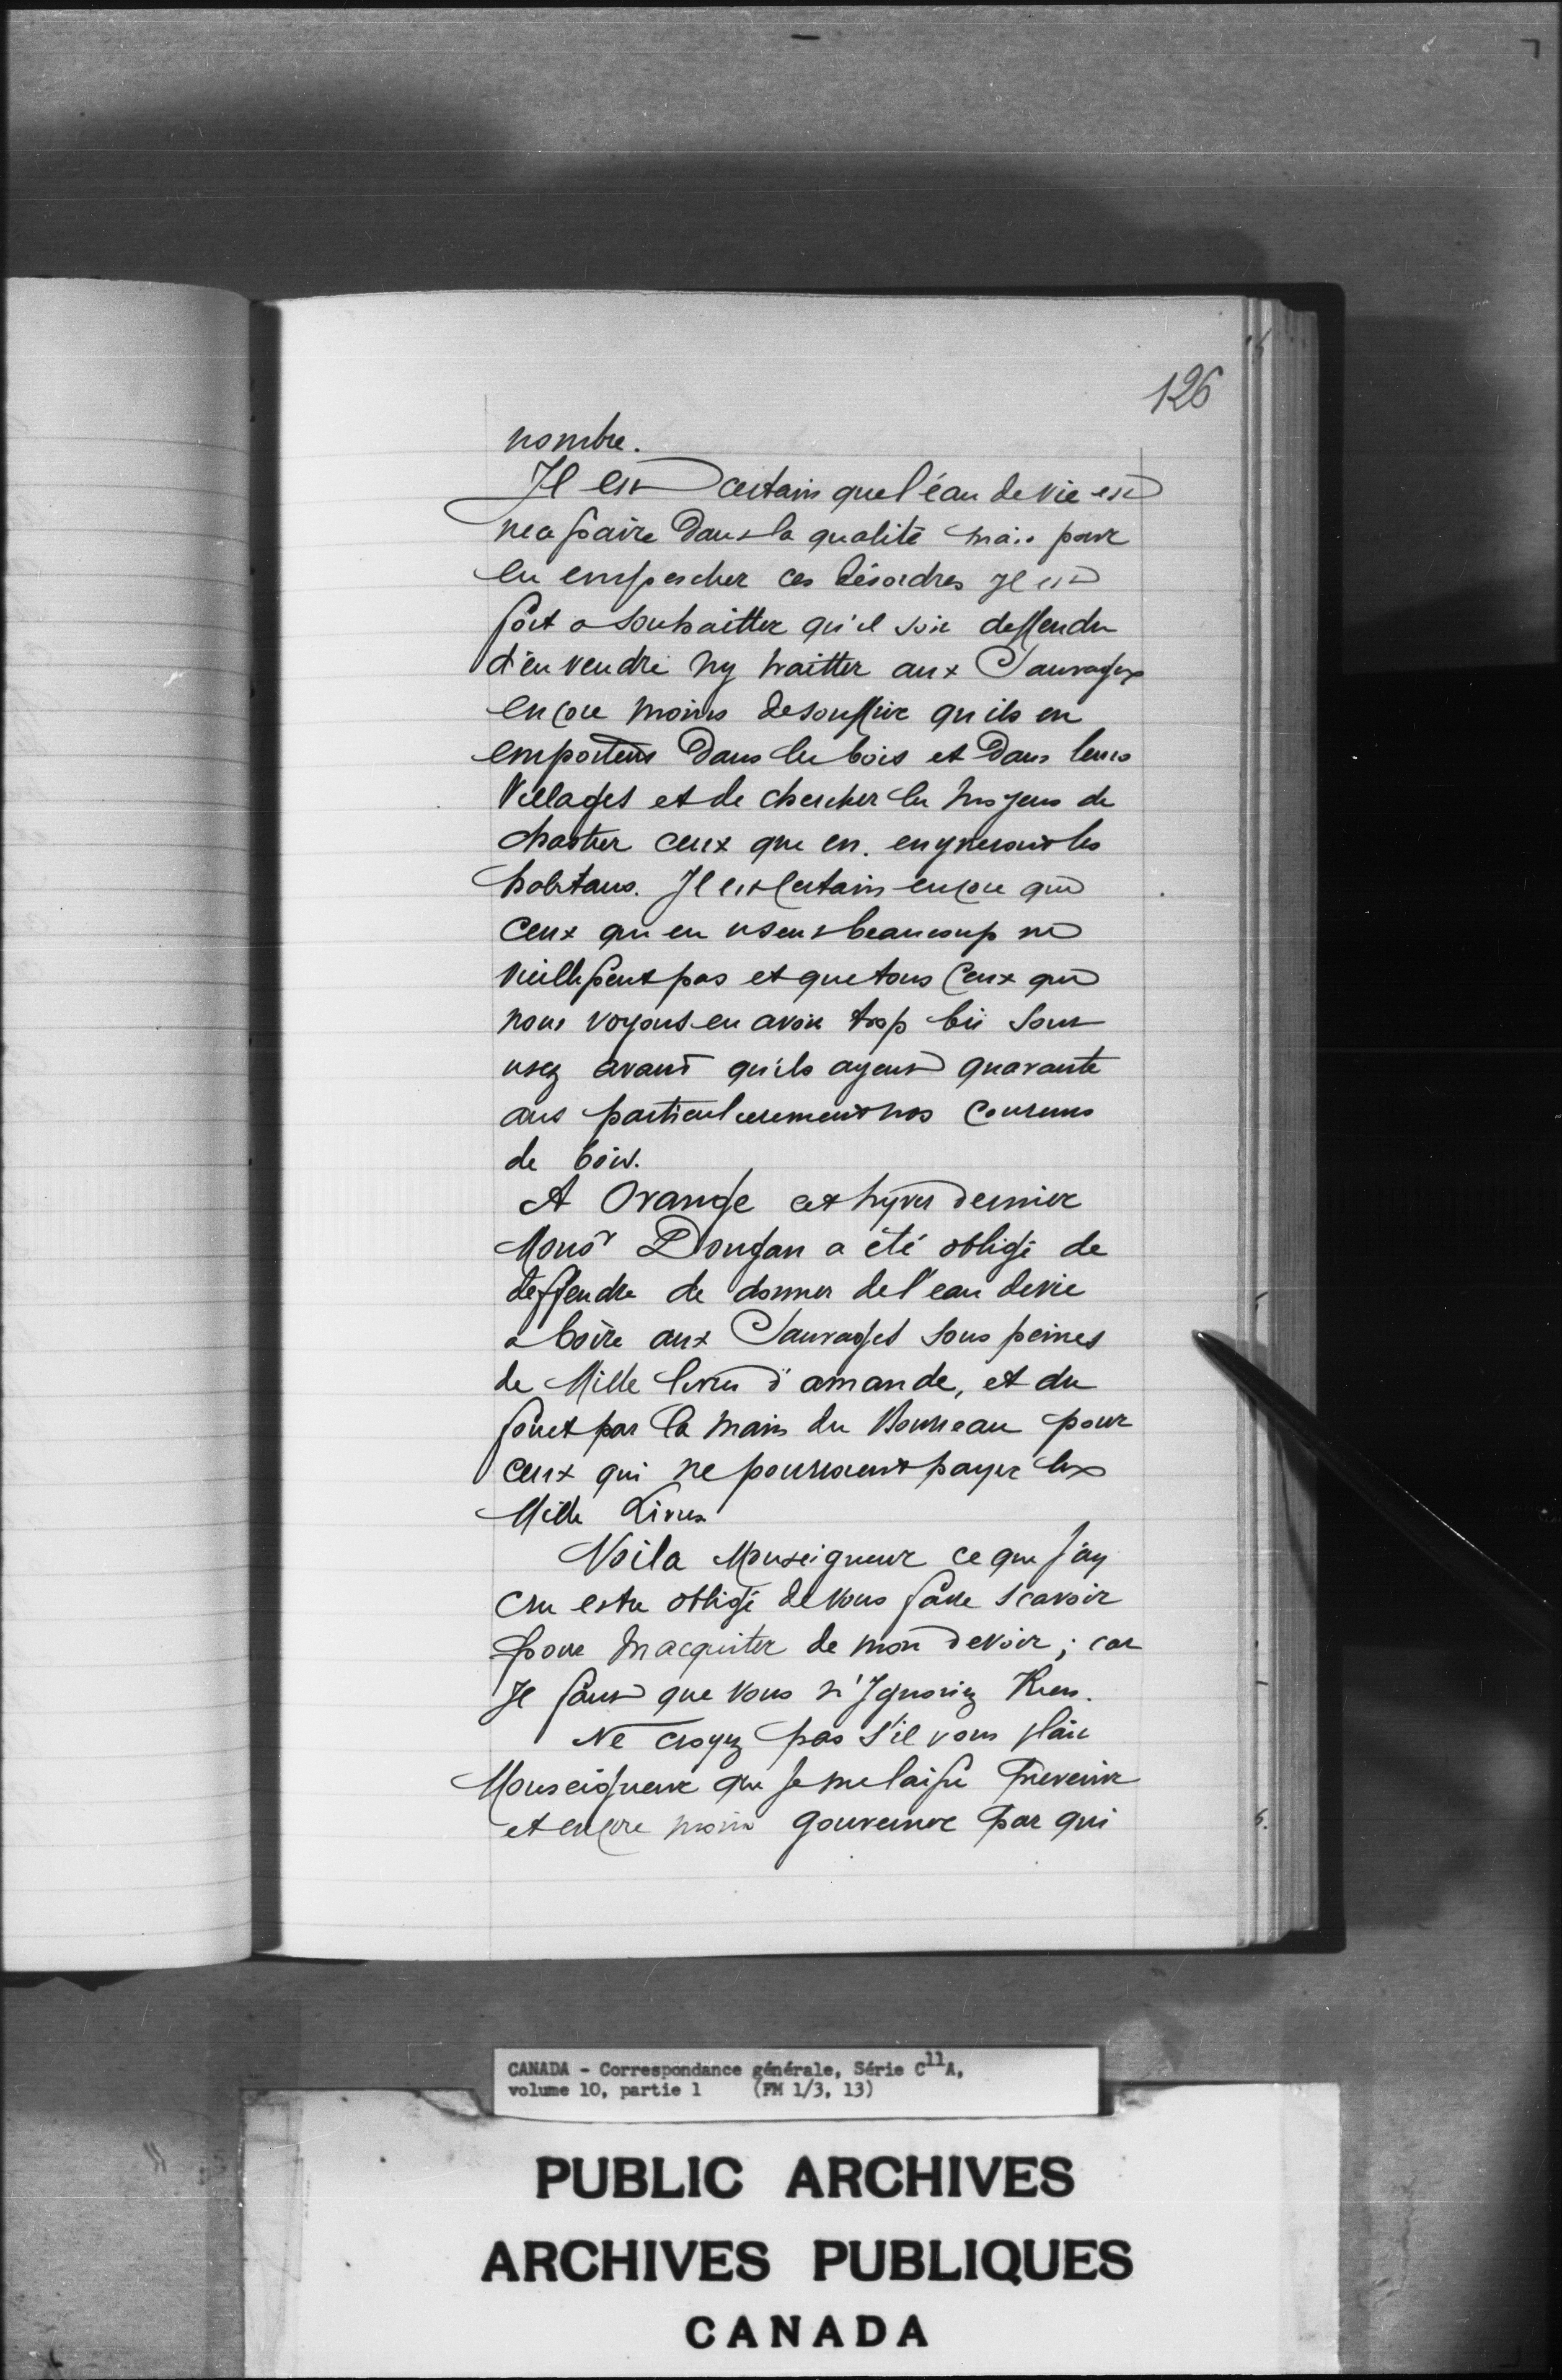 126
nombre.
Il est certain que l'éau de vie est
necessaire dans la qualité mais pour
en empescher ces désordres Il est
fort a souhaitter qu'il soit deffendu
d'en vendre ny traitter aux Sauvages
encore moins de souffrir qu'ils en
emportent dans les bois et dans leurs
Villages et de chercher les moyens de
chastier ceux que en. enyvreront les
habitans. Il est certain encore que
ceux qui en usent beaucoup ne
vieillissent pas et que tous ceux que
nous voyons en avoir trop bü sont
usez avant qu'ils ayent quarante
ans particulierement nos coureurs
de bois.
A Orange cet hyver dernier
Monsr Dongan a été obligé de
deffendre de donner de l'eau devie
a boire aux Sauvages sous peines
de Mille livres d'amande, et du
fouet par la main du Bourreau pour
ceux qui ne pourroient payer les
Mille Livres
Voila Monseigneur ce que j'ay
cru estre obligé de vous faire scavoir
pour macquiter de mon devoir; car
Il faut que vous n'Ignoriez Rien.
Ne croyez pas s'il vous plaît
Monseigneur que je me laisse Prevenir
et encore moins gouverner par qui
CANADA - Correspondance générale, Série C11A,
volume 10, partie 1 (FM 1/3, 13)
PUBLIC ARCHIVES
ARCHIVES PUBLIQUES
CANADA